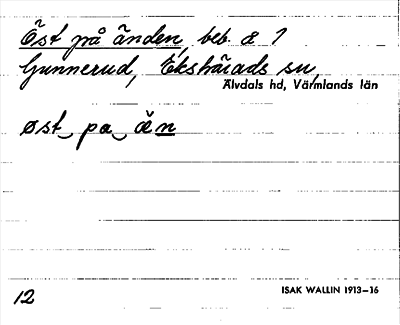 Öst på änden, beb. å 1
Gunnerud, Ekshärads sn,
Älvdals hd, Värmlands län
øst‿ pa‿ än
12
ISAK WALLIN 1913–16